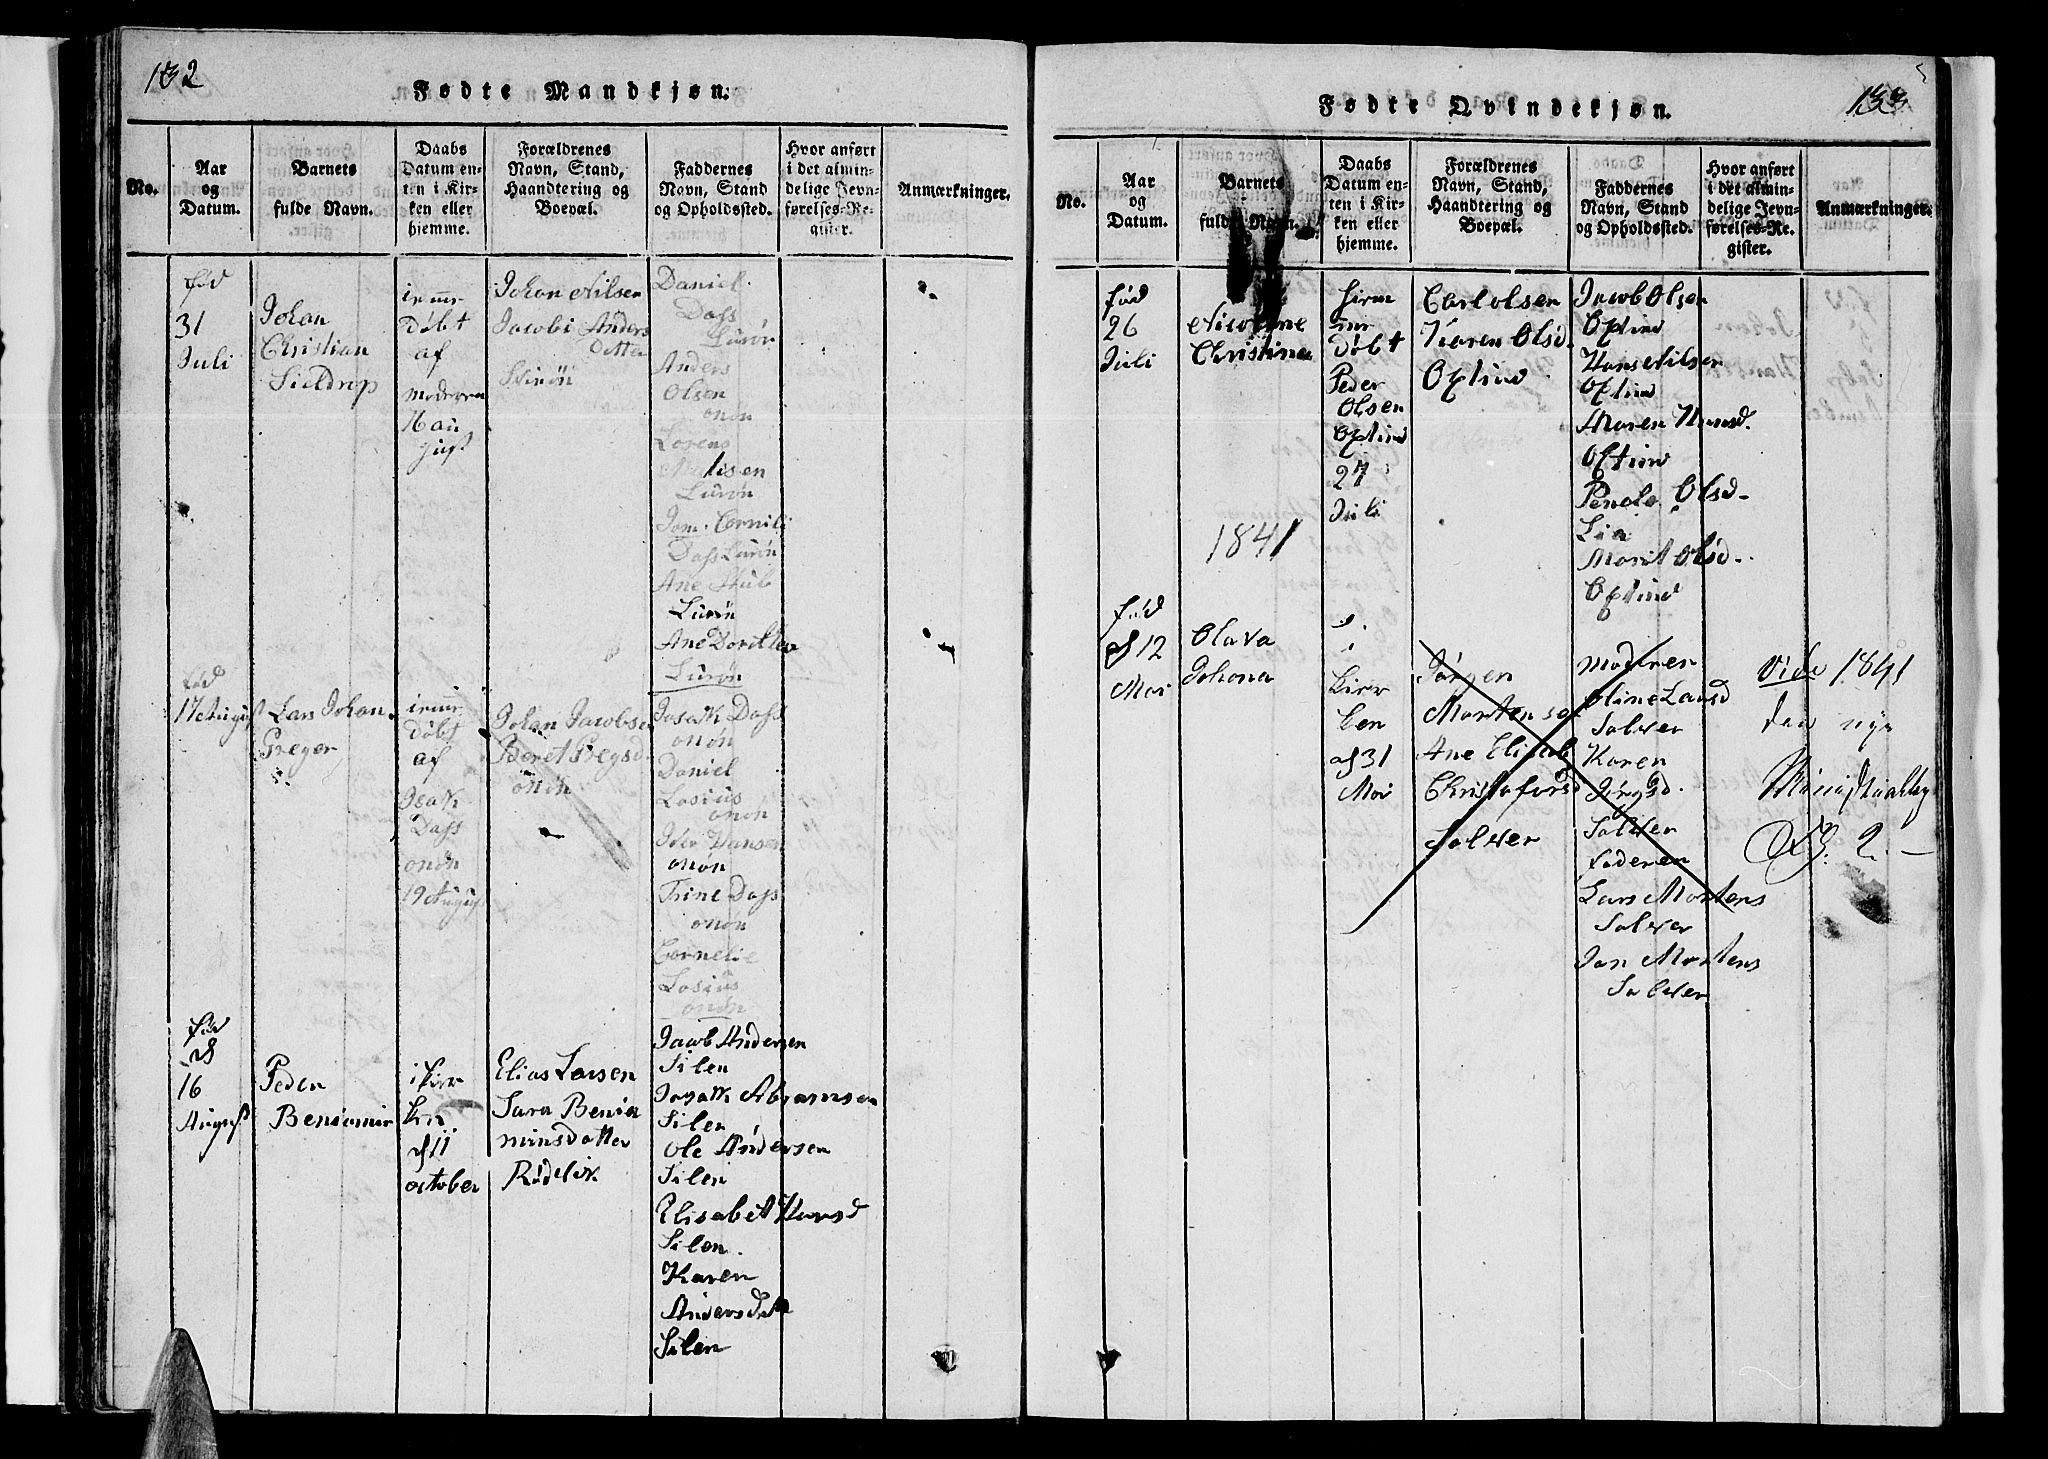 132
Fødte Mandkjøn.
No.
Aar
og
Datum.
Barnets
fulde Navn.
Daabs
Datum en-
ten i Kir-
ken eller
hjemme.
Forældrenes
Navn, Stand,
Haandtering og
Boepæl.
Faddernes
Navn, Stand
og Opholdssted.
Hvor anført
i det almin-
delige Jevn-
førelses-Re-
gister.
Anmærkninger.
fød
31
Juli
Johan
Christian
døbt
af
moderen
16 au
gust
Johan Nilsen
Jacobi Anders
Datter
Daniel
Dass
Lurøn
Anders
Olsen
onøn
Lorens
Lurøn
Jom. Cornili
Dass Lurøn
Ane
Lurøn
Ane Dorthea
Lurøn
fød
17 August
Lars Johan
Preger
døbt
af
Isak
Dass
onøn
19 August
Johan Jacobse
Beret Pregsd
onøn
Isack Dass
onøn
Daniel
Losius
onøn
Iver Hansen
onøn
Trine Dass
onøn
Cornelie
Losius
onøn
fød
d
16
August
Peder
Beniamin
i kir
ken
d 11
october
Elias Larsen
Sara Benia
minsdatter
Rødelik
Jacob Andersen
Silen
Isack Abramsen
Silen
Ole Andersen
Silen
Elisabet Hansd
Silen.
Karen
Andersdat
Silen
133
Fødte Qvindekjøn.
No.
Aar
og
Datum.
Barnets
fulde Navn.
Daabs
Datum en-
ten i Kir-
ken eller
hjemme.
Forældrenes
Navn, Stand,
Haandtering og
Boepæl.
Faddernes
Navn, Stand
og Opholdssted.
Hvor anført
i det almin-
delige Jevn-
førelses-Re-
gister.
Anmærkninger.
fød
26
Juli
Nicoline
Christina
døbt
Peder
Olsen
Optind
27
Juli
Carl Olsen
Karen Olsd.
Optind
Jacob Olsen
Optind
Hans Nilsen
Optind
Maren Hansd.
Optind
Penele Olsd-
Lia
Marit Olsd-
Optind
1841
fød
d 12
Mai
Olava
Johana
i
Kirr
ken
d 31
Mai
Jørgen
Mortense
Ane Elisab
Christofersd
Solver
moderen
Oline Larsd
Solver
Karen
Jørgsd.
Solver
faderen
Lars Mortens
Solver
Jan Mortens
Solver
Vide 1841
den nye
Ministrialbog
Pg. 2. —